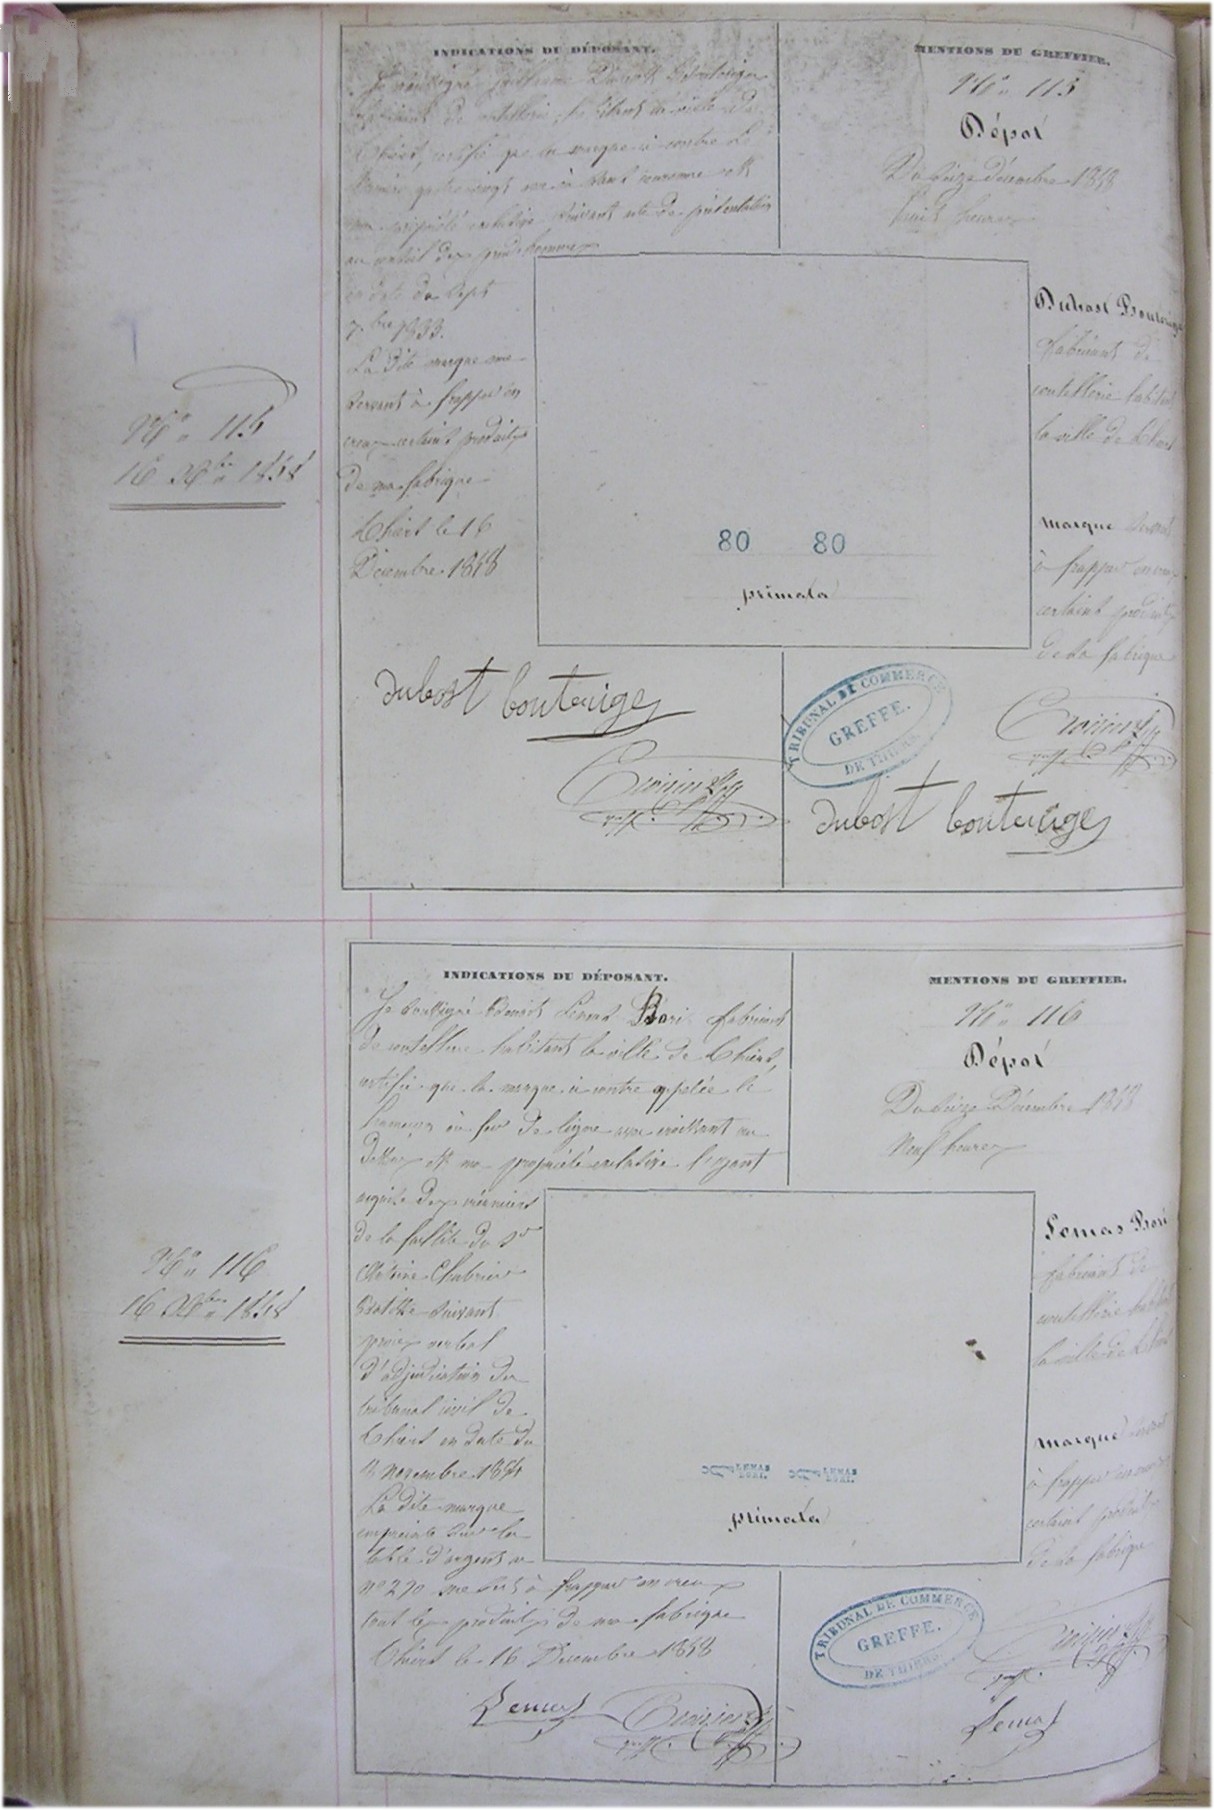 INDICATIONS DU DÉPOSANT.
Je soussigné Dubost Bouterige
fabricant de coutellerie, habitant la ville de
Thiers, certifie que la marque ci contre le
numéro quatre vingt couronne est
ma propriété exclusive suivant acte de présentation
au conseil des prud'hommes
en date du sept
7bre 1833.
La dite marque me
servant à frapper en
creux certains produits
de ma fabrique
Thiers le 16
Décembre 1858
MENTIONS DU GREFFIER.
No 115
Dépôt
Du seize décembre 1858
huit heures
Dubost Bouterige
fabricant de
coutellerie habitant
la ville de Thiers
marque servant
à frapper en creux
certains produits
de la fabrique
No 115
16 Xbre 1858
80 80
primata
dubost bouterige
TRIBUNAL DE COMMERCE
GREFFE.
DE THIERS
dubost bouterige
INDICATIONS DU DÉPOSANT.
Je soussigné Lemas Bori fabricant
de coutellerie habitant la ville de Thiers,
certifie que la marque ci contre appelée le
au
dessus est ma propriété exclusive l'ayant
acquise des créanciers
de la faillite du Sr
Antoine Chabrier
suivant
procès verbal
d'adjudication du
tribunal civil de
Thiers en date du
novembre 1854
La dite marque
empreinte sur la
table d'argent au
no 270 me sert à frapper en creux
tout les produits de ma fabrique
Thiers le 16 Décembre 1858
MENTIONS DU GREFFIER.
No 116
Dépôt
Du seize Décembre 1858
Neuf heures
Lemas Bori
fabricant de
coutellerie habitant
la ville de Thiers
marque servant
à frapper en creux
certains produits
de la fabrique
No 116
16 Xbre 1858
LEMAS LEMAS
BORI. BORI.
primata
TRIBUNAL DE COMMERCE
GREFFE.
DE THIERS
Lemas
Lemas